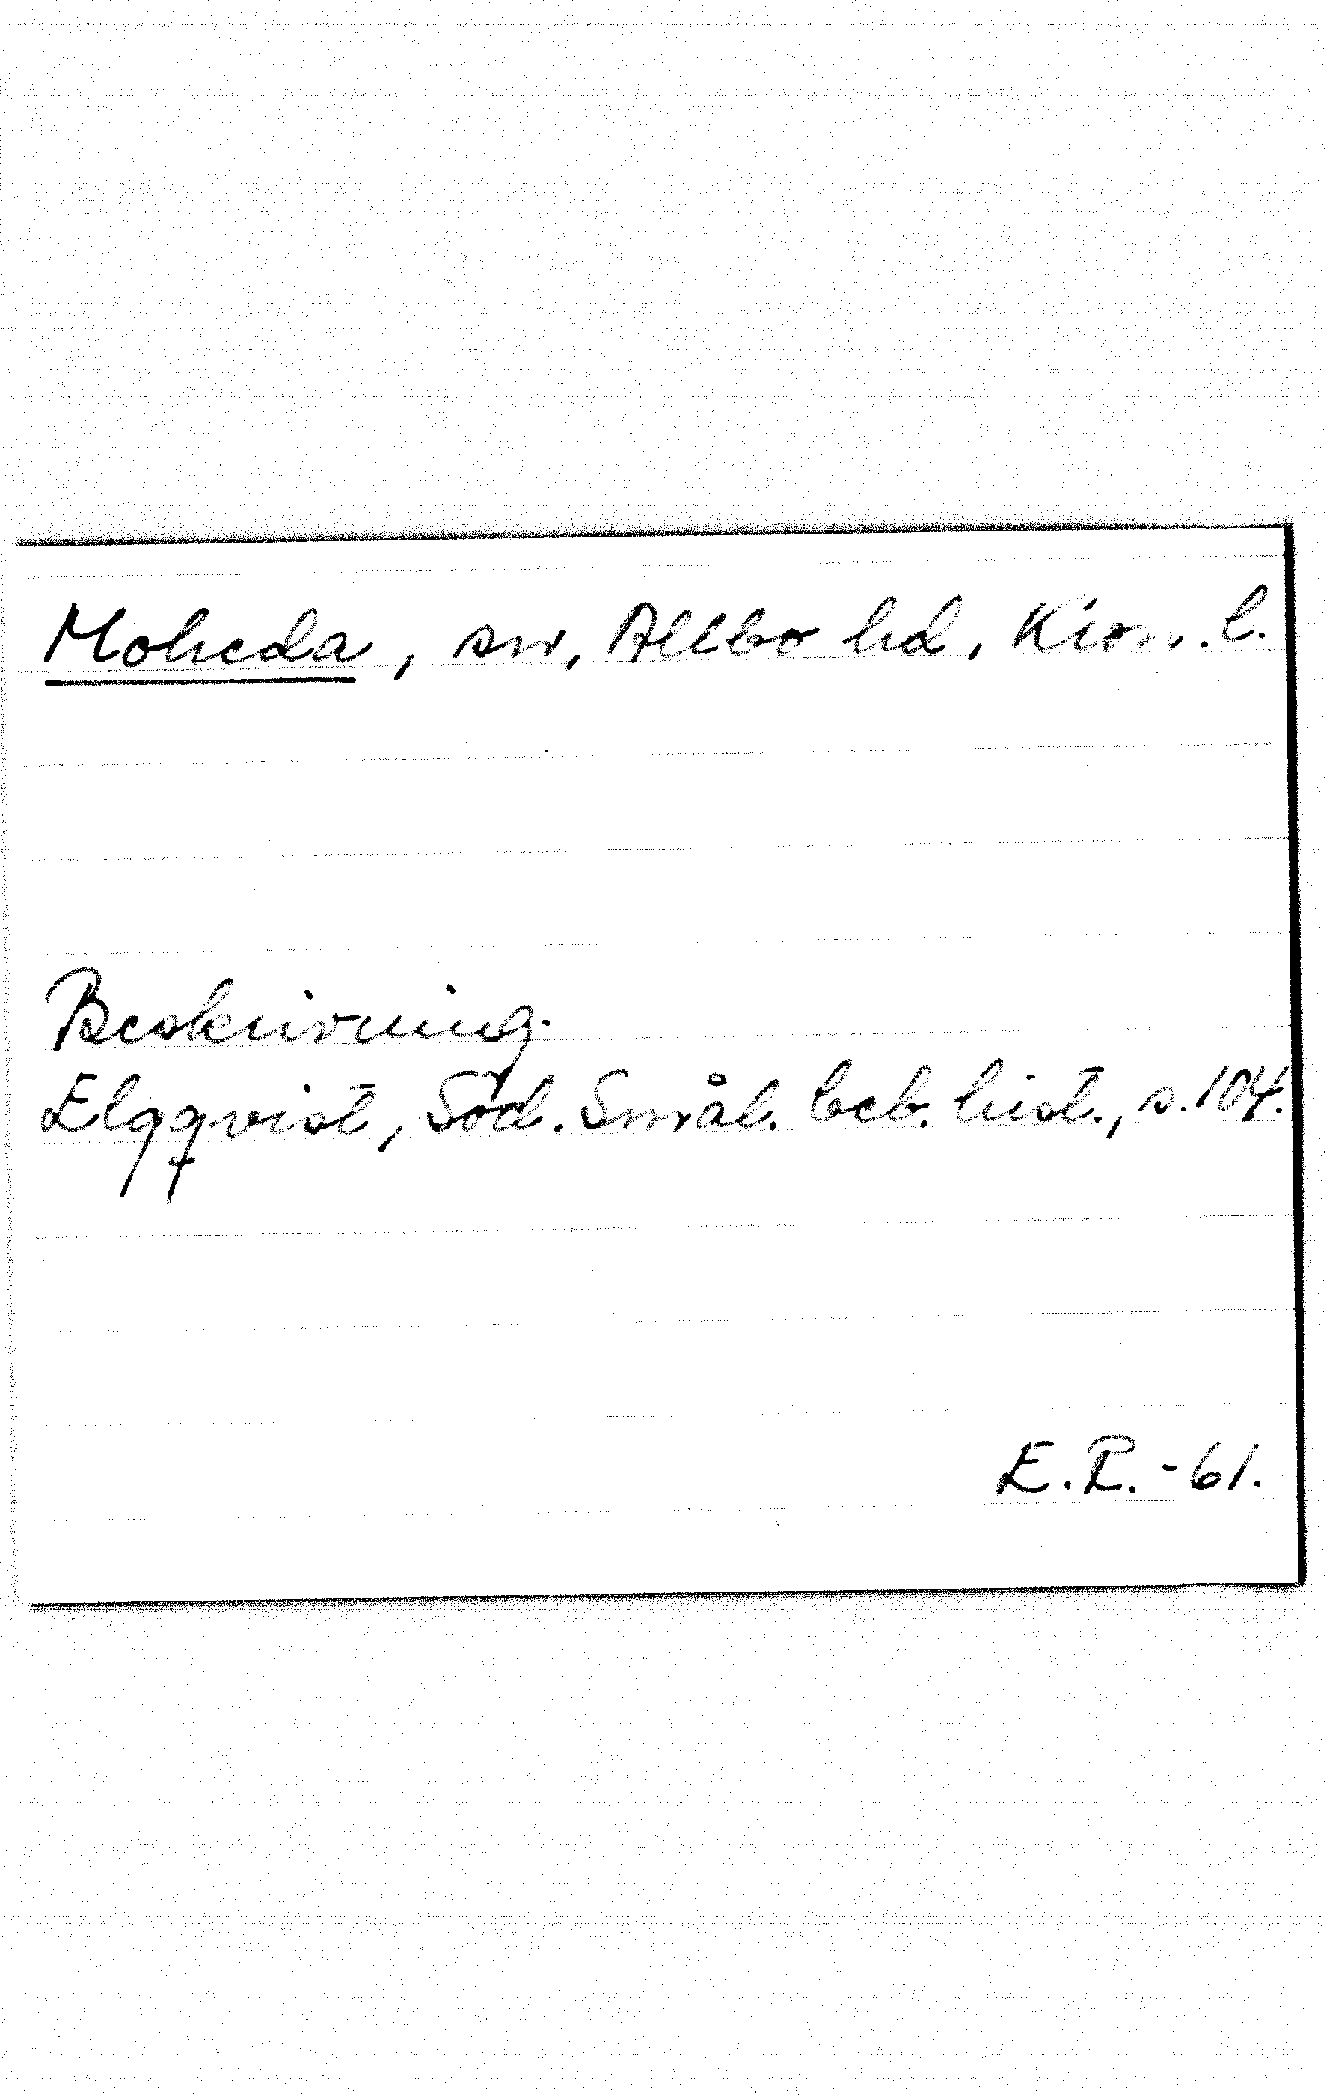 Moheda, sn, Allbo hd, Kron. l.
Beskrivning.
Elgqvist, Söd. Smål. beb. hist., s. 104.
E.P. -61.